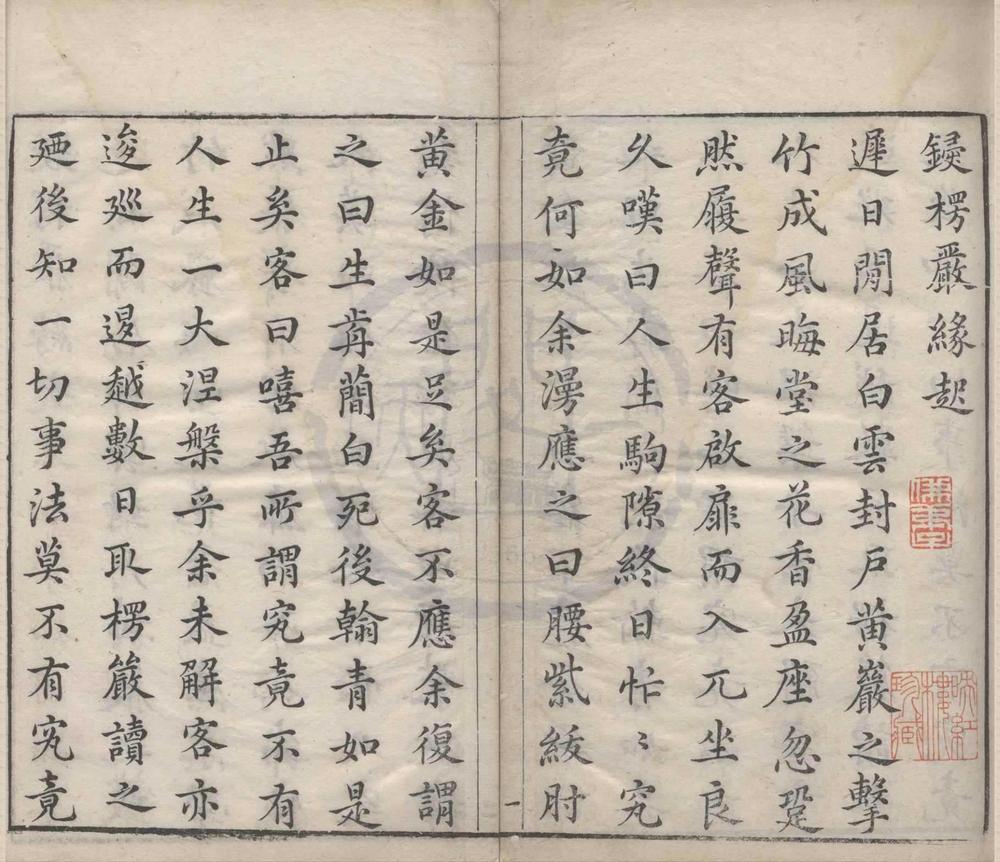 鋟楞嚴緣起
遲日閒居白雲封戸黄巖之擊
竹成風晦堂之花香盈座忽跫
然履聲有客啟扉而入兀坐良
久嘆曰人生駒隙終日忙〻究
竟何如余漫應之曰腰紫綬肘
黄金如是足矣客不應余復謂
之曰生肯簡白死後翰青如是
止矣客曰嘻吾所謂究竟不有
人生一大涅槃乎余未解客亦
逡廵而退越數日取楞嚴讀之
廼後知一切事法莫不有究竟
一
珍藏